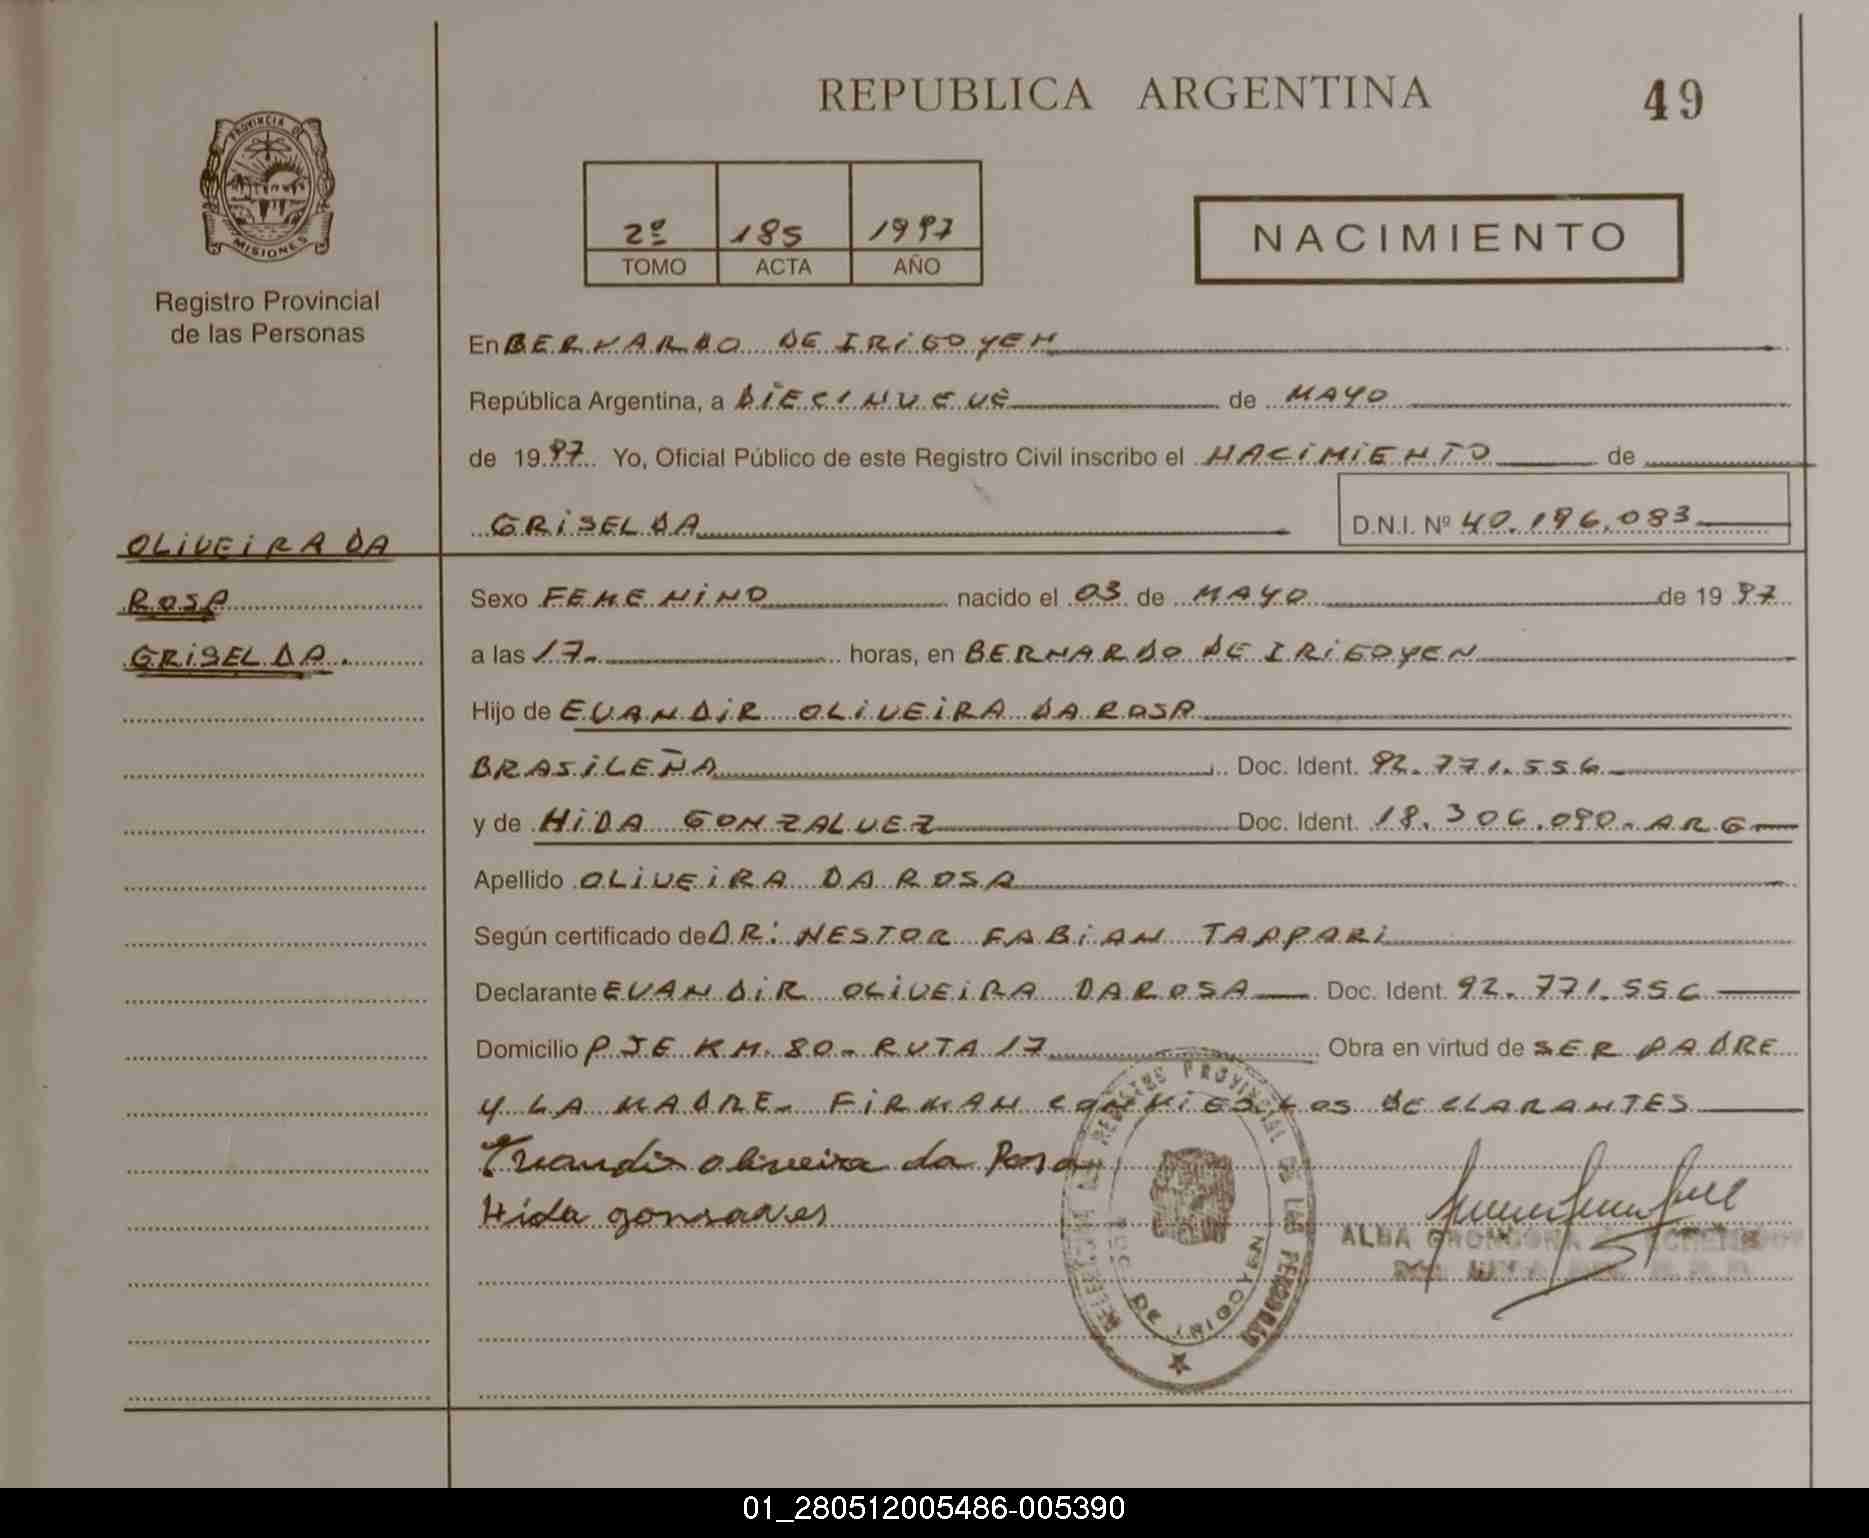 REPUBLICA ARGENTINA
49
PROVINCIA DE
MISIONES
Registro Provincial
de las Personas
2º 185 1997
TOMO ACTA AÑO
NACIMIENTO
En BERNARDO DE IRIGOYEN
República Argentina, a DIECINUEVE de MAYO
de 1997 Yo, Oficial Público de este Registro Civil inscribo el NACIMIENTO de
GRISELDA D.N.I. Nº 40.196.083
OLIVEIRA DA
ROSA
GRISELDA.
Sexo FEMENINO nacido el 03 de MAYO de 1997
a las 17- horas, en BERNARDO DE IRIGOYEN
Hijo de EVANDIR OLIVEIRA DA ROSA
BRASILEÑA Doc. Ident. 92.771.556
y de HIDA GONZALVEZ Doc. Ident. 18.306.090- ARG
Apellido OLIVEIRA DA ROSA
Según certificado de DR: NESTOR FABIAN TAPPARI
Declarante EVANDIR OLIVEIRA DA ROSA Doc. Ident. 92.771.556
Domicilio PJE KM. 80- RUTA 17 Obra en virtud de SER PADRE
Y LA MADRE- FIRMAN CONMIGO LOS DECLARANTES
Evandir oliveira da Rosa
Hida gonsalves
PROVINCIAL DE LAS PERSONAS
DE IRIGOYEN
ALBA
01_280512005486-005390